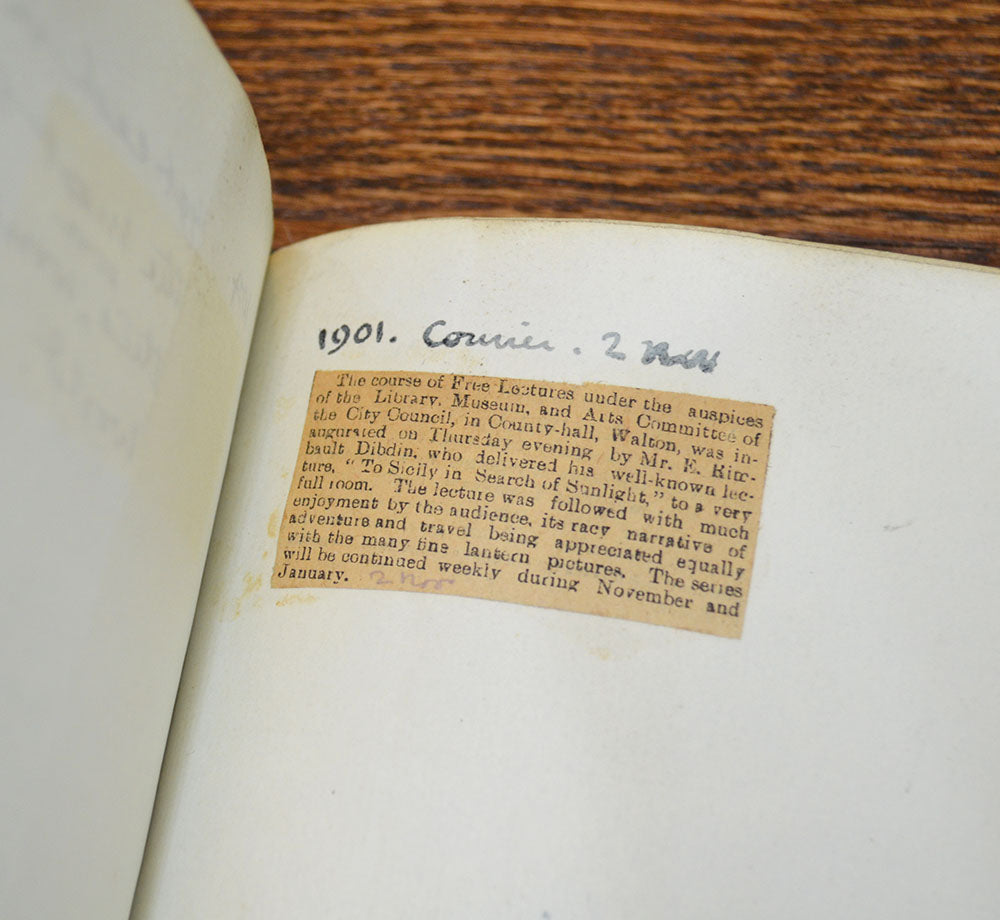 1901. Courier. 2 Nov
The course of Free Lectures under the auspices
of the Library, Museum, and Arts Committee of
the City Council, in County-hall, Walton, was in-
augurated on Thursday evening by Mr. E. Rim-
bault Dibdin, who delivered his well-known lec-
ture, "To Sicily in Search of Sunlight," to a very
full room. The lecture was followed with much
enjoyment by the audience, its racy narrative of
adventure and travel being appreciated equally
with the many fine lantern pictures. The series
will be continued weekly during November and
January. 2 Nov